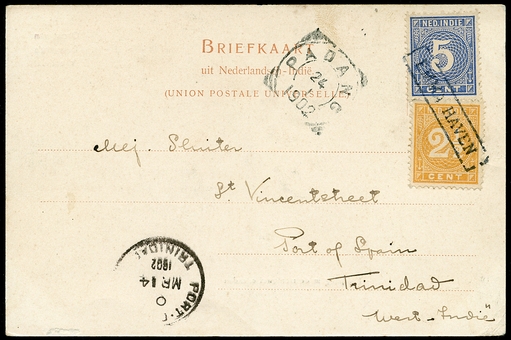 BRIEFKAART
uit Nederlandsch-Indië.
(UNION POSTALE UNIVERSELLE)
PADANG
24
1902
NED. INDIË
5
CENT
HAVEN
2
CENT
Mej. Sluiter
St Vincentstreet
Port of Spain
Trinidad
West-Indië
PORT-
O
MR 14
1902
TRINIDAD